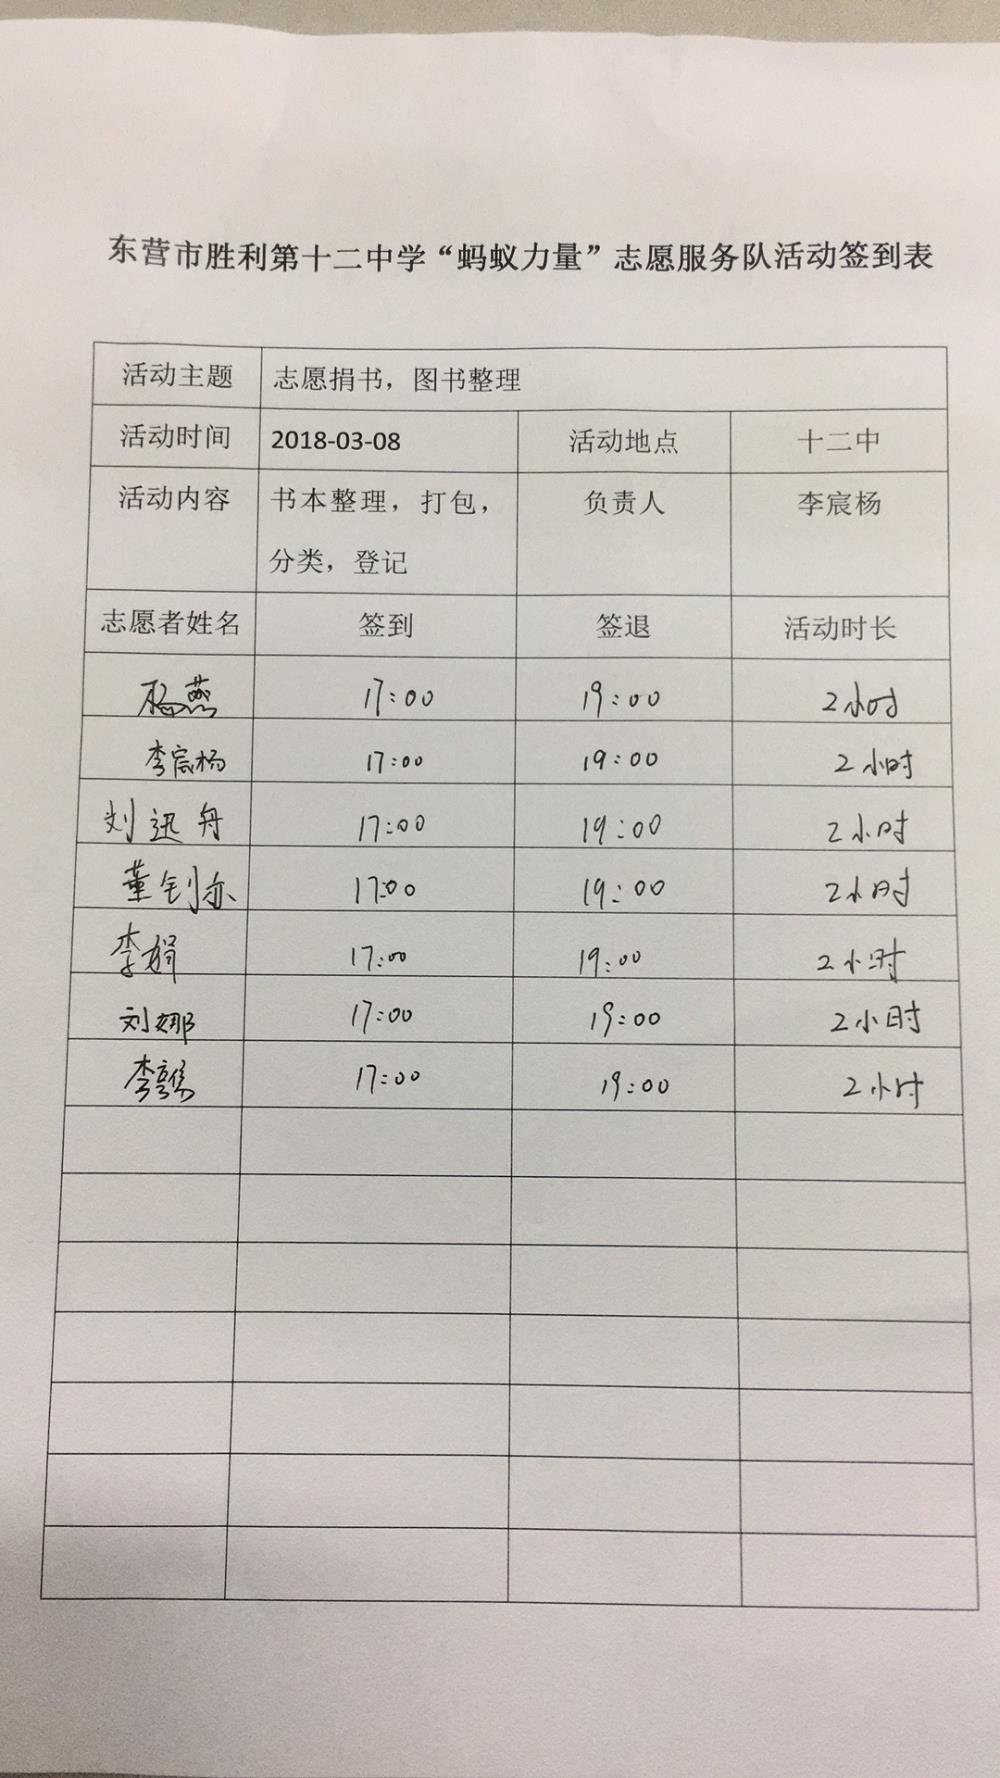 东营市胜利第十二中学“蚂蚁力量”志愿服务队活动签到表
活动主题 志愿捐书，图书整理
活动时间 2018-03-08 活动地点 十二中
活动内容 书本整理，打包， 负责人 李宸杨
分类，登记
志愿者姓名 签到 签退 活动时长
杨燕 17:00 19:00 2小时
李宸杨 17:00 19:00 2小时
刘迅舟 17:00 19:00 2小时
董钊亦 17:00 19:00 2小时
李娟 17:00 19:00 2小时
刘娜 17:00 19:00 2小时
李 17:00 19:00 2小时